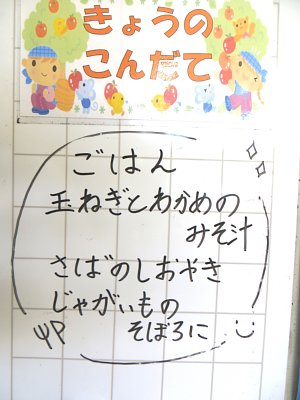 きょうの
こんだて
ごはん
玉ねぎとわかめの
みそ汁
さばのしおやき
じゃがいもの
そぼろに